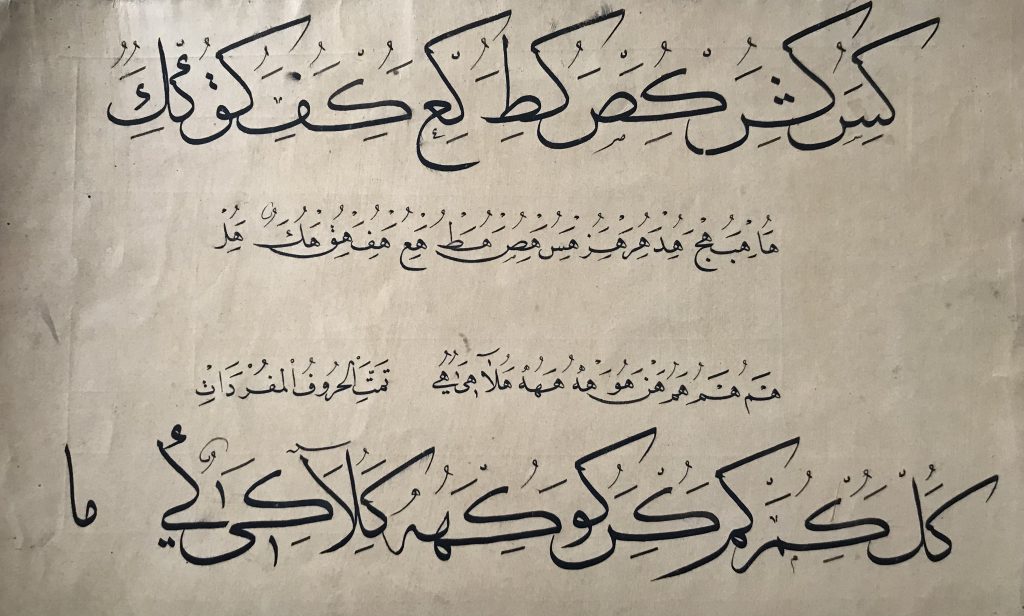 كس كش كص كط كع كف كق كك
ها هب هج هد هر هز هس هص هط هع هف هق هك هل
هم هم هم هن هو هه هه هلا هى هي تمت الحروف المفردات
كل كم كم كن كو كه كلا كى كي ما